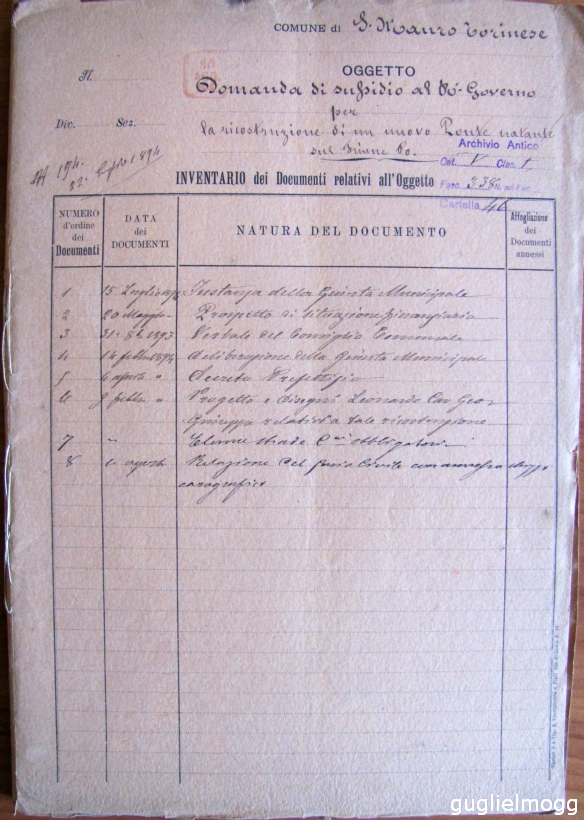 COMUNE di S. Mauro Torinese
N.
OGGETTO
Domanda di sussidio al R.º Governo
per
Div. Sez.
la ricostruzione di un nuovo Ponte natante
sul Fiume Po.
Archivio Antico
Cat. V Clas. 1
Fasc. 338
Cartella 46
INVENTARIO dei Documenti relativi all'Oggetto
NUMERO d'ordine dei Documenti
DATA dei DOCUMENTI
NATURA DEL DOCUMENTO
Affogliazione dei Documenti annessi
1 15 Luglio Instanza della Giunta Municipale
2 20 Maggio Prospetto di Situazione finanziaria
3 31 1893 Verbale del Consiglio Comunale
4 14 febb. 1894 Deliberazione della Giunta Municipale
5 6 aprile " Decreto Prefettizio
6 febb. " Progetto e disegni Leonardo Cav. Geo.
Giuseppe relativi a tale ricostruzione
7 " Elenco strade C.li obbligatorie
8 6 agosto Relazione del Genio Civile con annessa
guglielmogg